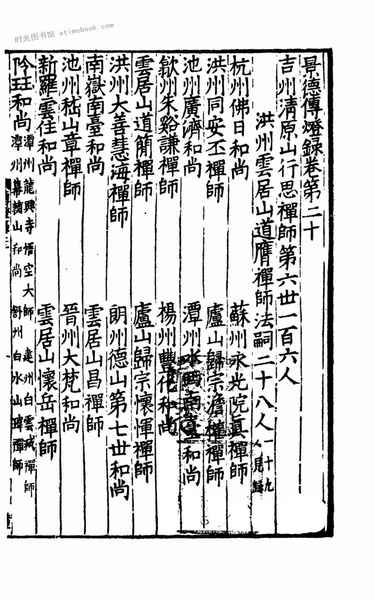 时光图书馆 etimebook.com
景德傳燈錄卷第二十
吉州清原山行思禪師第六世一百六人
洪州雲居山道膺禪師法嗣二十八人一十九人見錄
杭州佛日和尚 蘇州永光院真禪師
洪州同安丕禪師 廬山歸宗澹權禪師
池州廣濟和尚 潭州水西南臺和尚
歙州朱谿謙禪師 楊州豐化和尚
雲居山道簡禪師 廬山歸宗懷惲禪師
洪州大善慧海禪師 朗州德山第七世和尚
南嶽南臺和尚 雲居山昌禪師
池州嵇山章禪師 晉州大梵和尚
新羅雲住和尚 雲居山懷岳禪師
吟珏和尚 潭州龍興寺悟空大師 建州白雲減禪師
潭州幕輔山和尚 舒州白水山瑋禪師